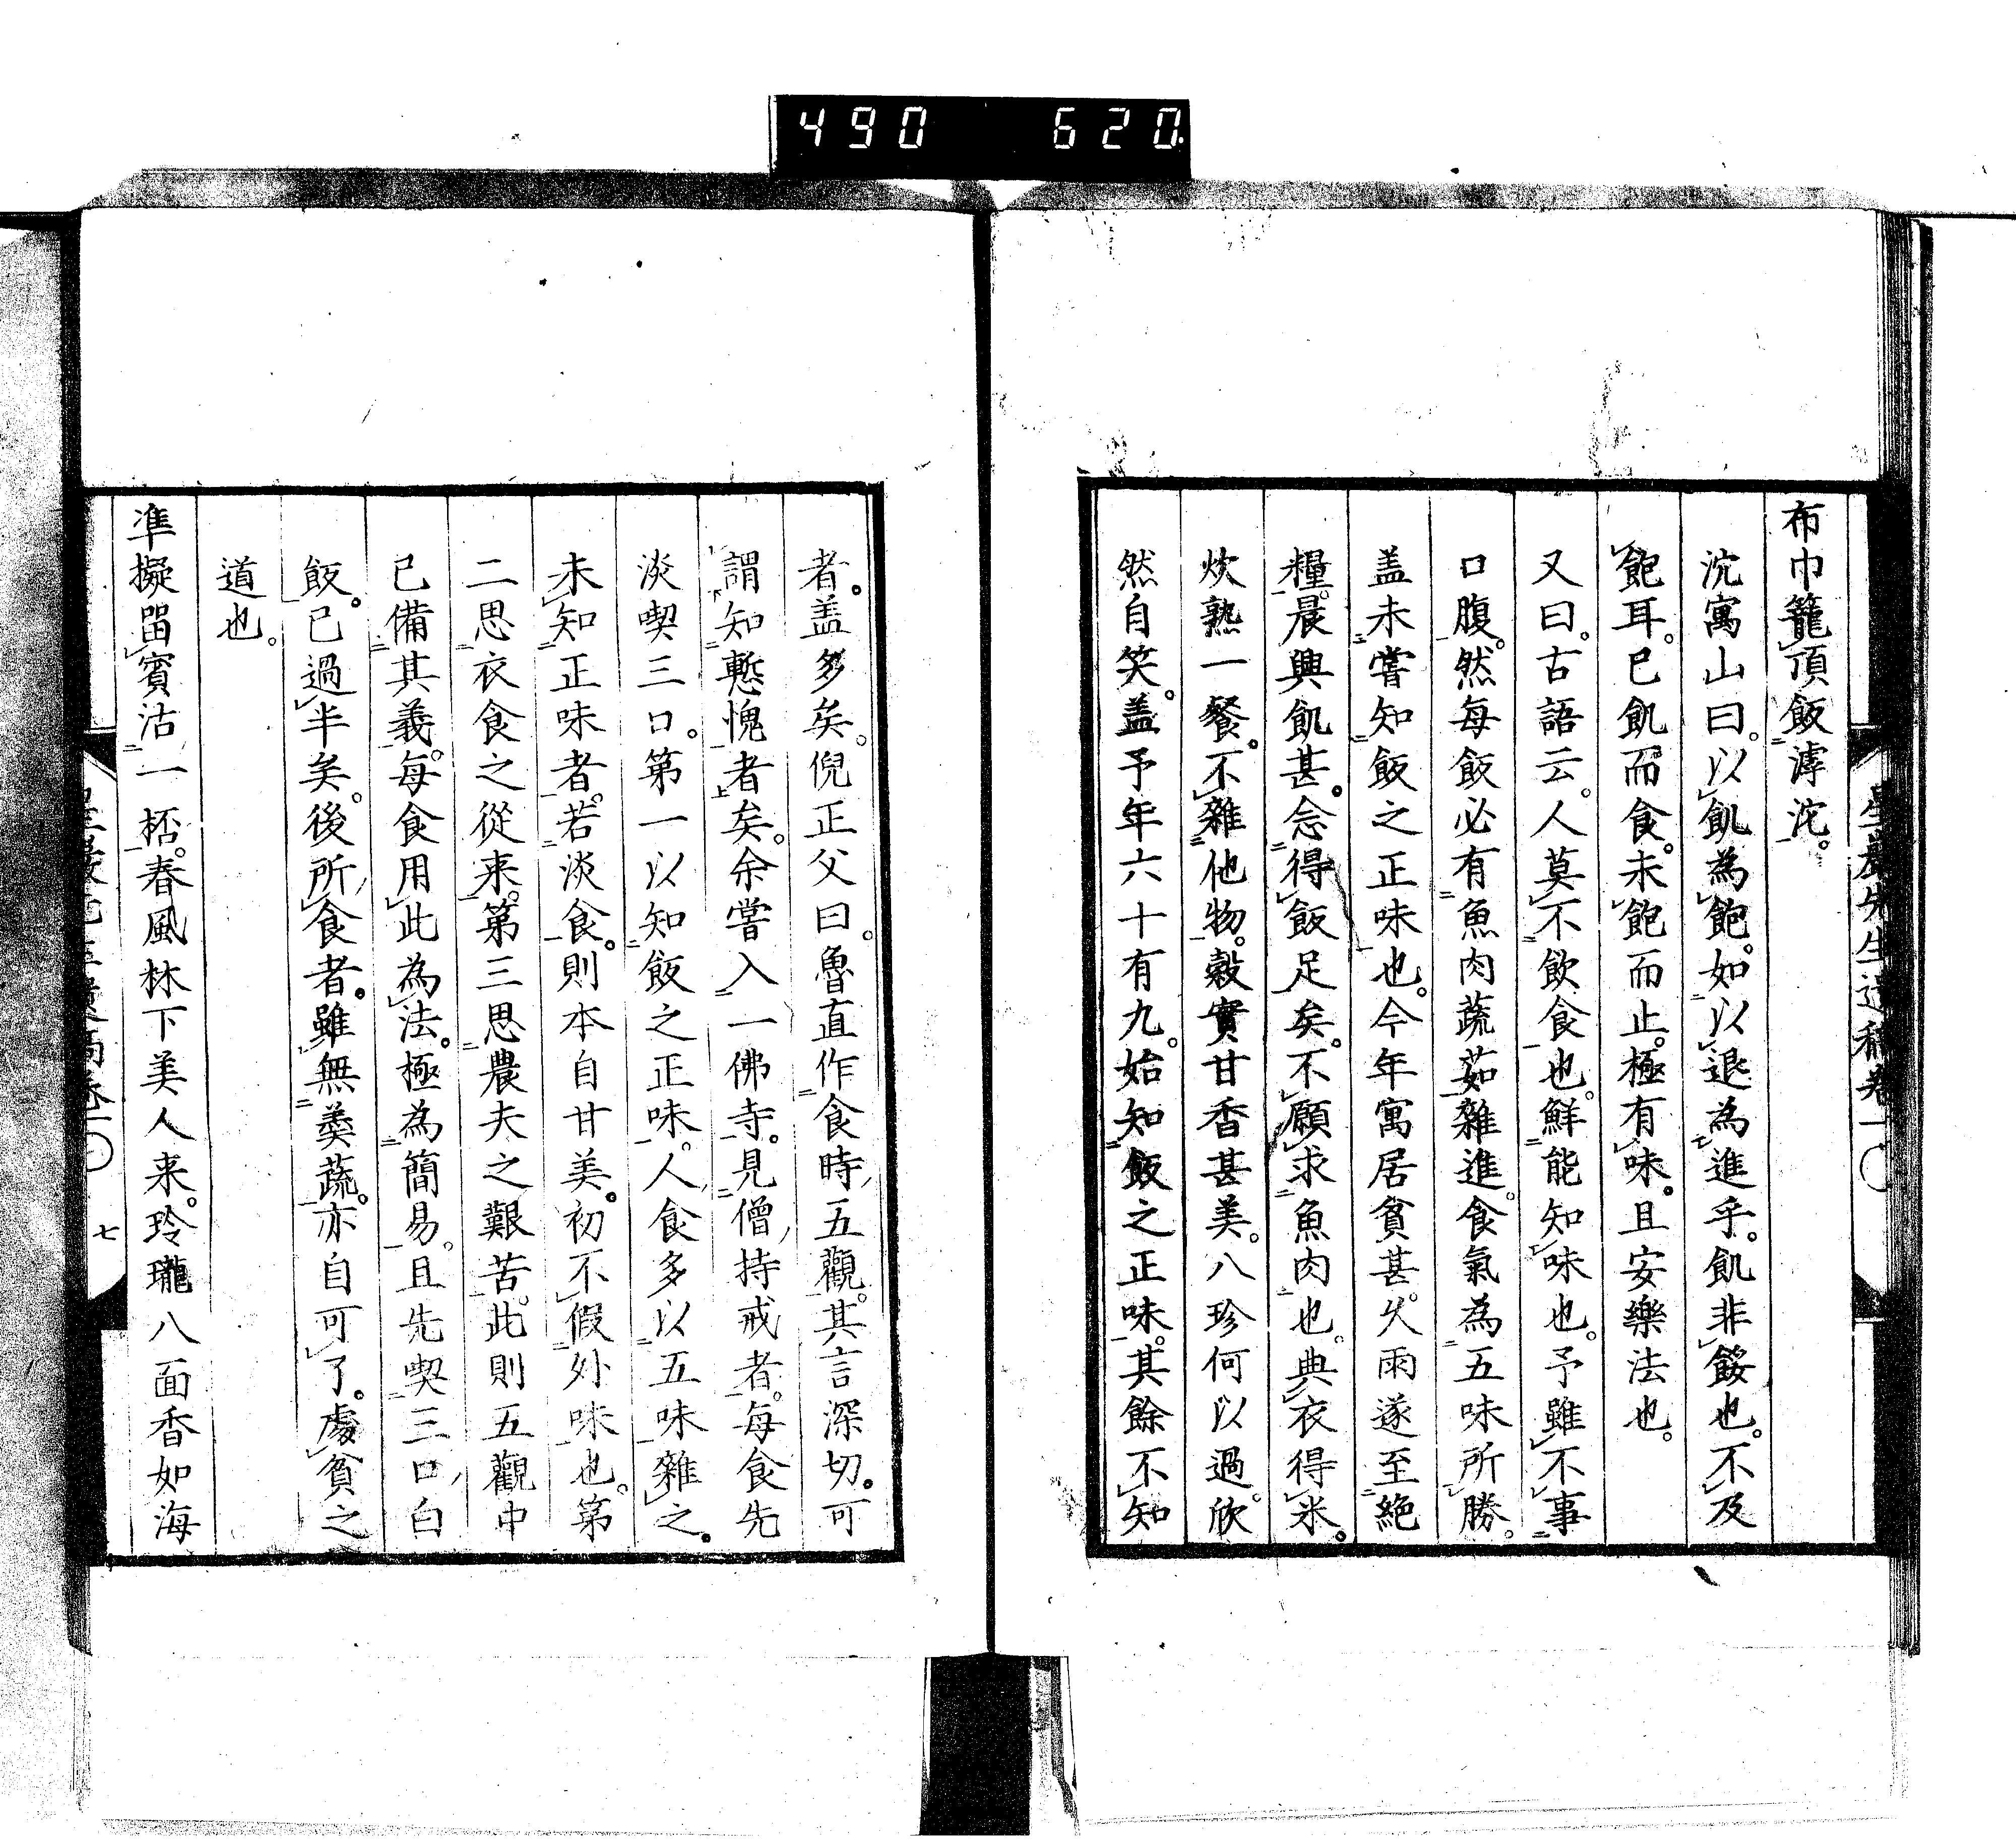 490 620
布巾籠頂飯滹沱。
沆寓山曰。以飢為飽。如以退為進乎。飢非餒也。不及
飽耳。已飢而食。未飽而止。極有味。且安樂法也。
又曰。古語云。人莫不飲食也。鮮能知味也。予雖不事
口腹。然每飯必有魚肉蔬茹雜進。食氣為五味所勝。
盖未嘗知飯之正味也。今年寓居貧甚。火雨遂至絕
糧。晨興飢甚。念得飯足矣。不願求魚肉也。典衣得米。
炊熟一餐。不雜他物。穀實甘香甚美。八珍何以過。欣
然自笑。盖予年六十有九。始知飯之正味。其餘不知
者。盖多矣。倪正父曰。魯直作食時五觀。其言深切。可
謂知慙愧者矣。余嘗入一佛寺。見僧持戒者。每食先
淡喫三口。第一以知飯之正味。人食多以五味雜之。
未知正味者。若淡食。則本自甘美。初不假外味也。第
二思衣食之從来。第三思農夫之艱苦。此則五觀中
已備其義。每食用此為法。極為簡易。且先喫三口白
飯。已過半矣。後所食者。雖無羹蔬。亦自可了。處貧之
道也。
凖擬畱賓沽一桮。春風林下美人来。玲瓏八面香如海
七